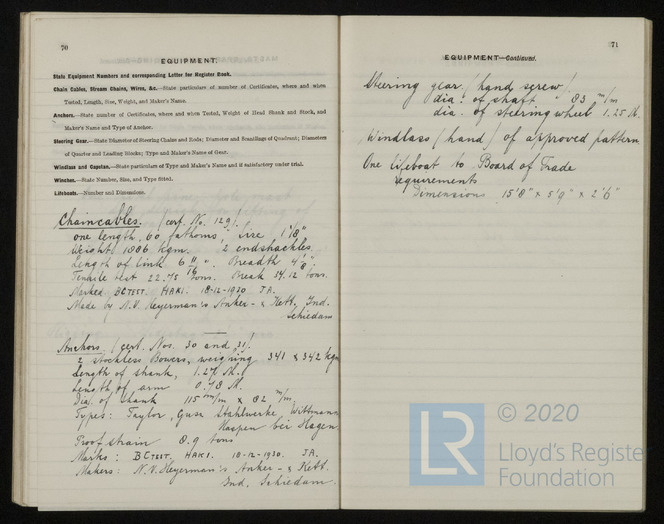 70
EQUIPMENT.
State Equipment Numbers and corresponding Letter for Register Book.
Chain Cables, Stream Chains, Wires, &c.—State particulars of number of Certificates, where and when
Tested, Length, Size, Weight, and Maker's Name.
Anchors.—State number of Certificates, where and when Tested, Weight of Head Shank and Stock, and
Maker's Name and Type of Anchor.
Steering Gear.—State Diameter of Steering Chains and Rods; Diameter and Scantlings of Quadrant; Diameters
of Quarter and Leading Blocks; Type and Maker's Name of Gear.
Windlass and Capstan.—State particulars of Type and Maker's Name and if satisfactory under trial.
Winches.—State Number, Size, and Type fitted.
Lifeboats.—Number and Dimensions.
Chaincables. (cert. No. 129).
one length 60 fathoms, size 1 1/8"
Weight 1886 kgm. 2 endshackles
Length of link 6 11/16". Breadth 4"
Tensile test 22.75 tons. Break 34.12 tons.
Marked BCTEST. HAKI. 18-12-1930 JA.
Made by N.V. Heyerman's Anker- & Kett. Ind.
Schiedam
Anchors (cert. Nos. 30 and 31).
2 stockless Bowers, weighing 341 & 342 kgm
Length of shank, 1.27 M.
Length of arm 0.78 M.
Dia. of shank 115 m/m x 82 m/m
Types: Taylor, Guss Stahlwerke, Wittmann
Haspen bei Hagen
Proofstrain 8.9 tons
Marks: BCTEST. HAKI. 18-12-1930. JA.
Makers: N.V. Heyerman's Anker- & Kett.
Ind. Schiedam.
71
EQUIPMENT—Continued.
Steering gear (hand screw).
dia. of shaft 83 m/m
dia. of steering wheel 1.25 M.
Windlass (hand) of approved pattern
One lifeboat to Board of Trade
requirements
Dimensions 15'8" x 5'9" x 2'6"
LR
© 2020
Lloyd's Register
Foundation